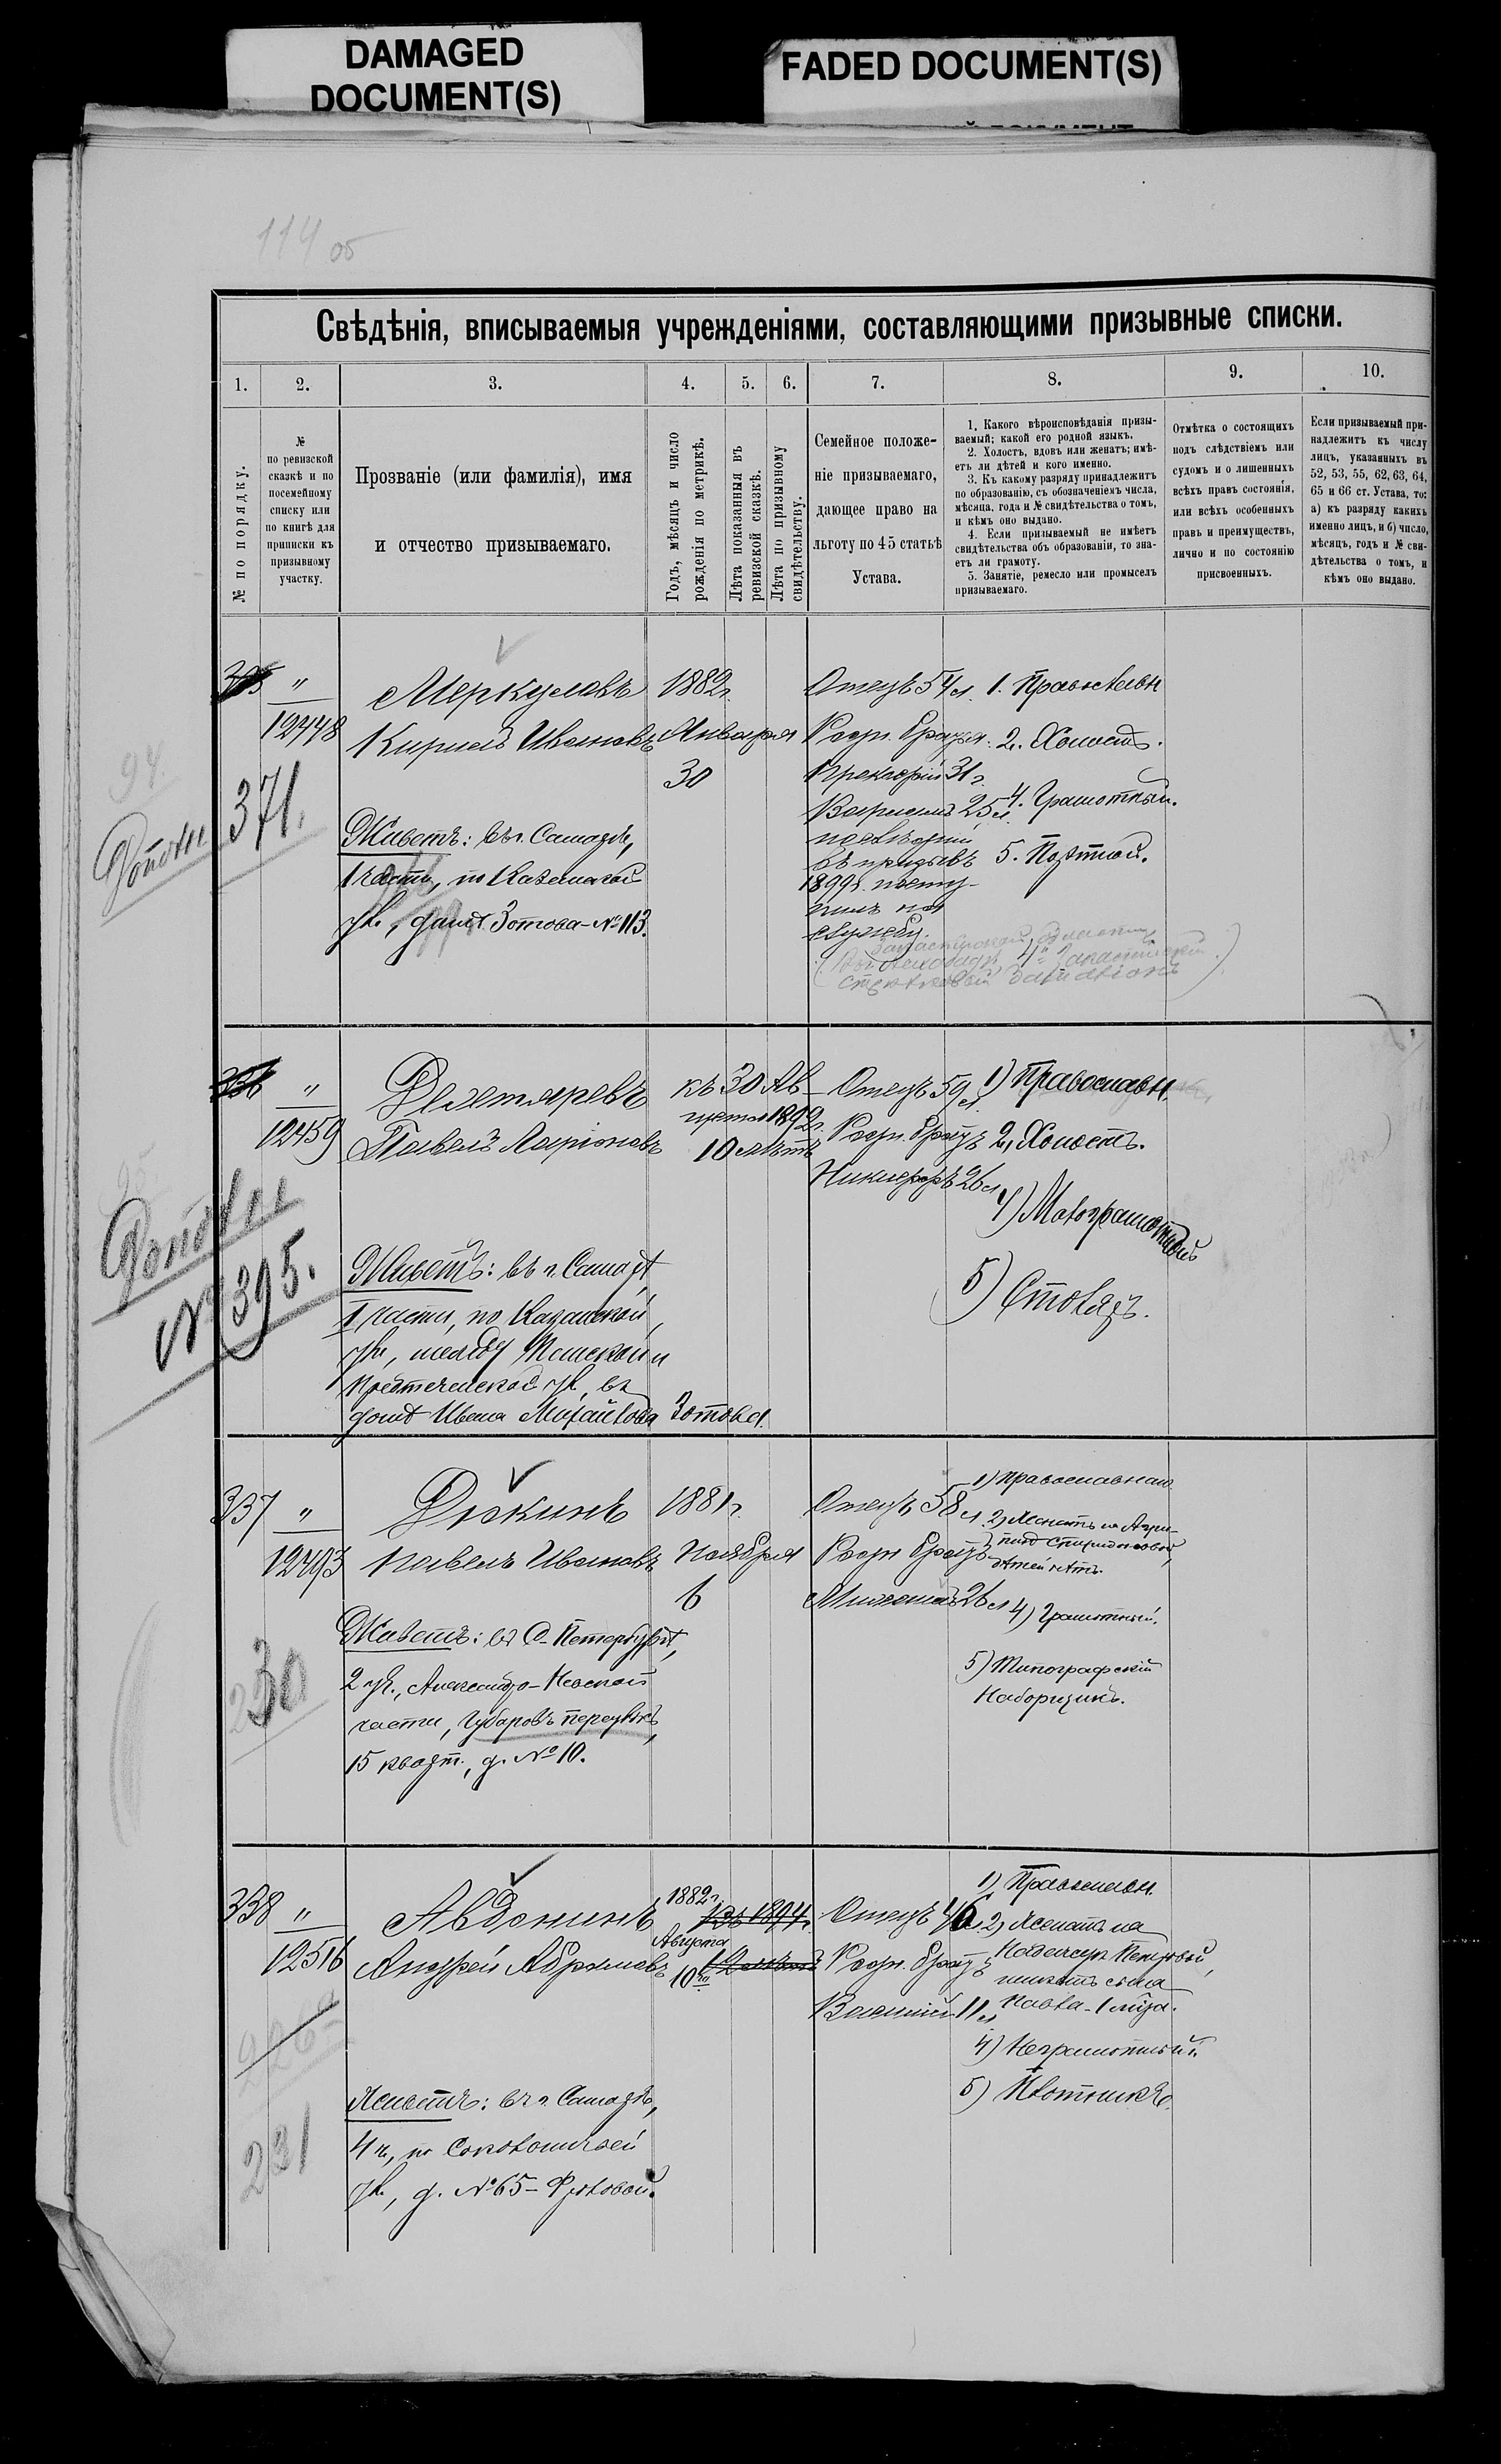 DAMAGED
DOCUMENT(S)
FADED DOCUMENT(S)
114 об
Свѣдѣнія, вписываемыя учрежденіями, составляющими призывные списки.
1. 2. 3. 4. 5. 6. 7. 8. 9. 10.
№ по порядку.
№
по ревизской
сказкѣ и по
посемейному
списку или
по книгѣ для
приписки къ
призывному
участку.
Прозваніе (или фамилія), имя
и отчество призываемаго.
Годъ, мѣсяцъ и число
рожденія по метрикѣ.
Лѣта показанныя въ
ревизской сказкѣ.
Лѣта по призывному
свидѣтельству.
Семейное положе-
ніе призываемаго,
дающее право на
льготу по 45 статьѣ
Устава.
1. Какого вѣроисповѣданія призы-
ваемый; какой его родной языкъ.
2. Холостъ, вдовъ или женатъ; имѣ-
етъ ли дѣтей и кого именно.
3. Къ какому разряду принадлежитъ
по образованію, съ обозначеніемъ числа,
мѣсяца, года и № свидѣтельства о томъ,
и кѣмъ оно выдано.
4. Если призываемый не имѣетъ
свидѣтельства объ образованіи, то зна-
етъ ли грамоту.
5. Занятіе, ремесло или промыселъ
призываемаго.
Отмѣтка о состоящихъ
подъ слѣдствіемъ или
судомъ и о лишенныхъ
всѣхъ правъ состоянія,
или всѣхъ особенныхъ
правъ и преимуществъ,
лично и по состоянію
присвоенныхъ.
Если призываемый при-
надлежитъ къ числу
лицъ, указанныхъ въ
52, 53, 55, 62, 63, 64,
65 и 66 ст. Устава, то:
а) къ разряду какихъ
именно лицъ, и б) число,
мѣсяцъ, годъ и № сви-
дѣтельства о томъ, и
кѣмъ оно выдано.
335 "
12448
94.
371.
Меркуловъ
Кирилъ Ивановъ
Живетъ: въ г. Самарѣ,
1 части, по Казанской
ул., домъ Зотова - № 113.
1882 г.
Января
30
Отецъ 54 л.
Родн. братья:
31 г.
25 л.
въ призывъ
1899 г. посту-
пилъ на
службу.
1. Православн
2. Холостъ.
4. Грамотный.
5. Портной.
336 "
12459
№ 395.
Дегтяревъ
Павелъ Ларіоновъ
Живетъ: въ г. Самарѣ
1 части, по Казанской
ул., между и
Предтеченской ул., въ
домѣ Ивана Михайлова Зотова.
къ 30 Ав-
густа 1892 г.
10 лѣтъ
Отецъ 59 л.
Родн. братъ
Никифоръ 26 л.
1) Православн.
2) Холостъ.
4) Малограмотный
5) Столяръ.
337 "
12493
230
Дюкинъ
Павелъ Ивановъ
Живетъ: въ С-Петербургѣ,
2 уч., Александро-Невской
части, Чубаровъ переулокъ,
15 кварт., д. № 10.
1881 г.
Ноября
6
Отецъ 58 л.
Родн. братъ
Михаилъ 26 л.
1) Православнаго
2) Женатъ на Агри-
пинѣ Спиридоновой,
дѣтей нѣтъ.
4) Грамотный.
5) Типографскій
Наборщикъ.
338 "
12516
231
Авдонинъ
Андрей Абрамовъ
Живетъ: въ г. Самарѣ,
4 ч., по Соколоничьей
ул., д. № 65 - Фроловой.
1882 г.
Августа
10го
Отецъ 46 л.
Родн. братъ
Василій 11 л.
1) Православн.
2) Женатъ на
Надеждѣ Петровой,
имѣетъ сына
Павла - 1 года.
4) Неграмотный.
5) Плотникъ.